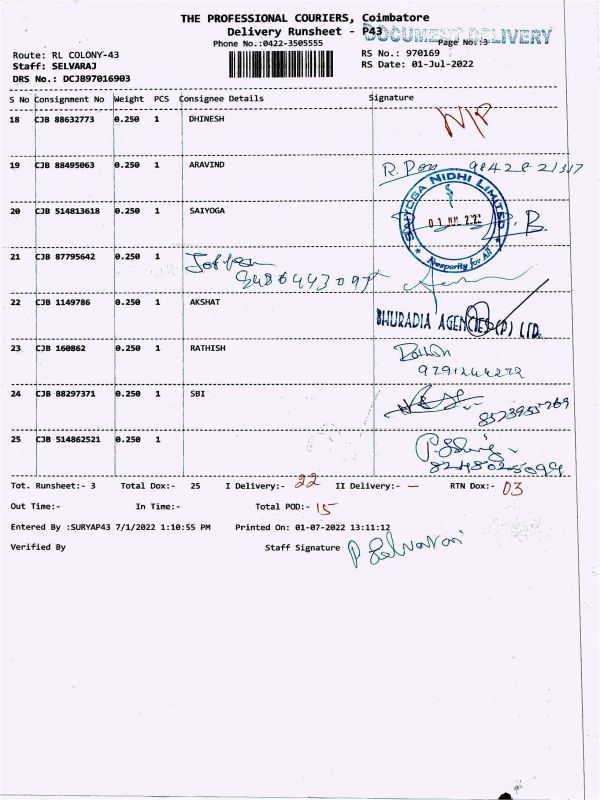 THE PROFESSIONAL COURIERS, Coimbatore
Delivery Runsheet - P43
DOCUMENT DELIVERY
Phone No.:0422-3505555
Page No.:3
Route: RL COLONY-43
RS No.: 970169
Staff: SELVARAJ
RS Date: 01-Jul-2022
DRS No.: DCJB97016903
S No Consignment No Weight PCS Consignee Details Signature
18 CJB 88632773 0.250 1 DHINESH N/P
19 CJB 88495063 0.250 1 ARAVIND
SAIYOGA NIDHI LIMITED
Prosperity for All
20 CJB 514813618 0.250 1 SAIYOGA B.
21 CJB 87795642 0.250 1
22 CJB 1149786 0.250 1 AKSHAT
BHURADIA AGENCIES (P) LTD.
23 CJB 160862 0.250 1 RATHISH
24 CJB 88297371 0.250 1 SBI
25 CJB 514862521 0.250 1
Tot. Runsheet:- 3 Total Dox:- 25 I Delivery:- 22 II Delivery:- – RTN Dox:- 03
Out Time:- In Time:- Total POD:- 15
Entered By :SURYAP43 7/1/2022 1:10:55 PM Printed On: 01-07-2022 13:11:12
Verified By Staff Signature